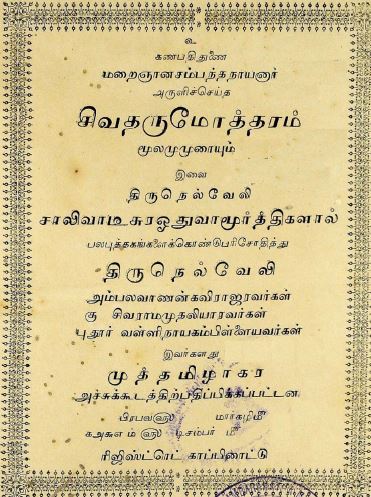 உ
கணபதிதுணை
மறைஞானசம்பந்தநாயனார்
அருளிச்செய்த
சிவதருமோத்தரம்
மூலமுமுரையும்
இவை
திருநெல்வேலி
சாலிவாடீசுரஓதுவாமூர்த்திகளால்
பலபுத்தகங்களைக்கொண்டுபரிசோதித்து
திருநெல்வேலி
அம்பலவாணன்கவிராஜரவர்கள்
௫ சிவராமமுதலியாரவர்கள்
புதூர் வள்ளிநாயகம்பிள்ளையவர்கள்
இவர்களது
முத்தமிழாகர
அச்சுக்கூடத்திற்பதிப்பிக்கப்பட்டன
பிரபவ௵ மார்கழி௴
க௮௮௭ ம் ௵ டிசம்பர் ௴
ரிஜிஸ்ட்ரெட் காப்பிரைட்டு